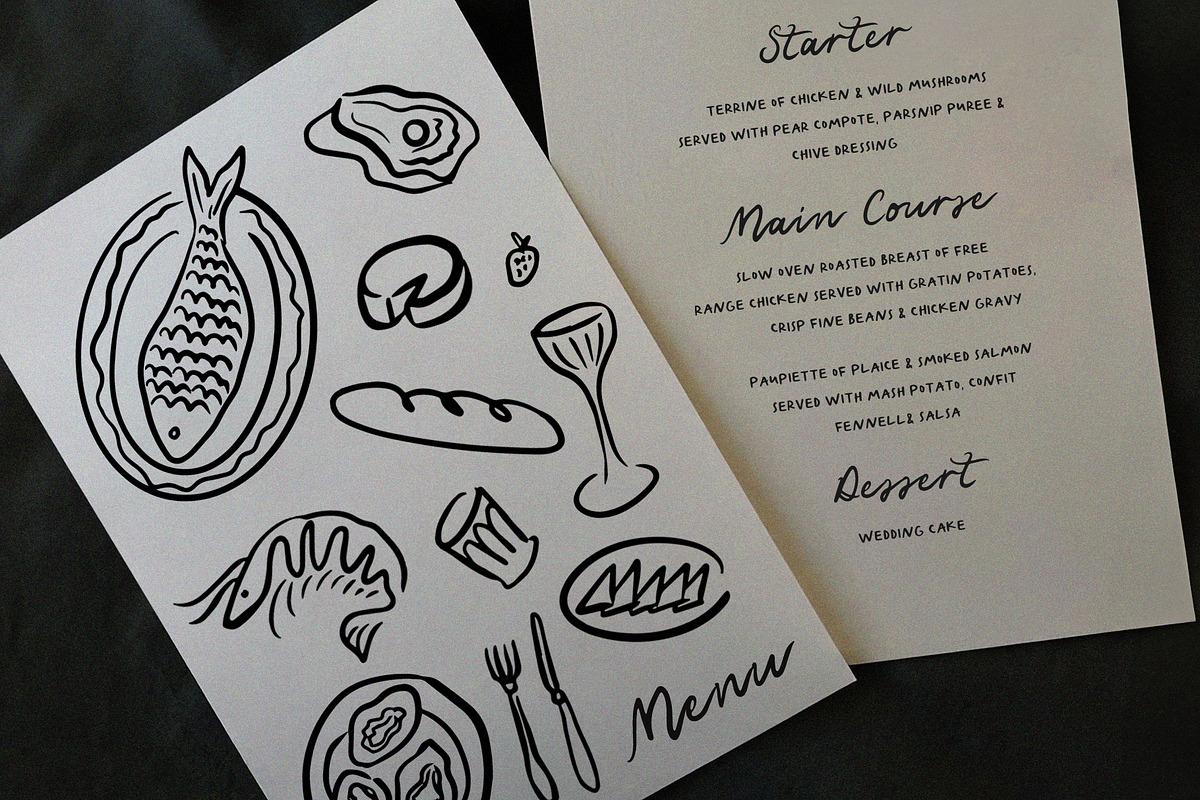 Starter
TERRINE OF CHICKEN & WILD MUSHROOMS
SERVED WITH PEAR COMPOTE, PARSNIP PUREE &
CHIVE DRESSING
Main Course
SLOW OVEN ROASTED BREAST OF FREE
RANGE CHICKEN SERVED WITH GRATIN POTATOES,
CRISP FINE BEANS & CHICKEN GRAVY
PAUPIETTE OF PLAICE & SMOKED SALMON
SERVED WITH MASH POTATO, CONFIT
FENNELL& SALSA
Dessert
WEDDING CAKE
Menu